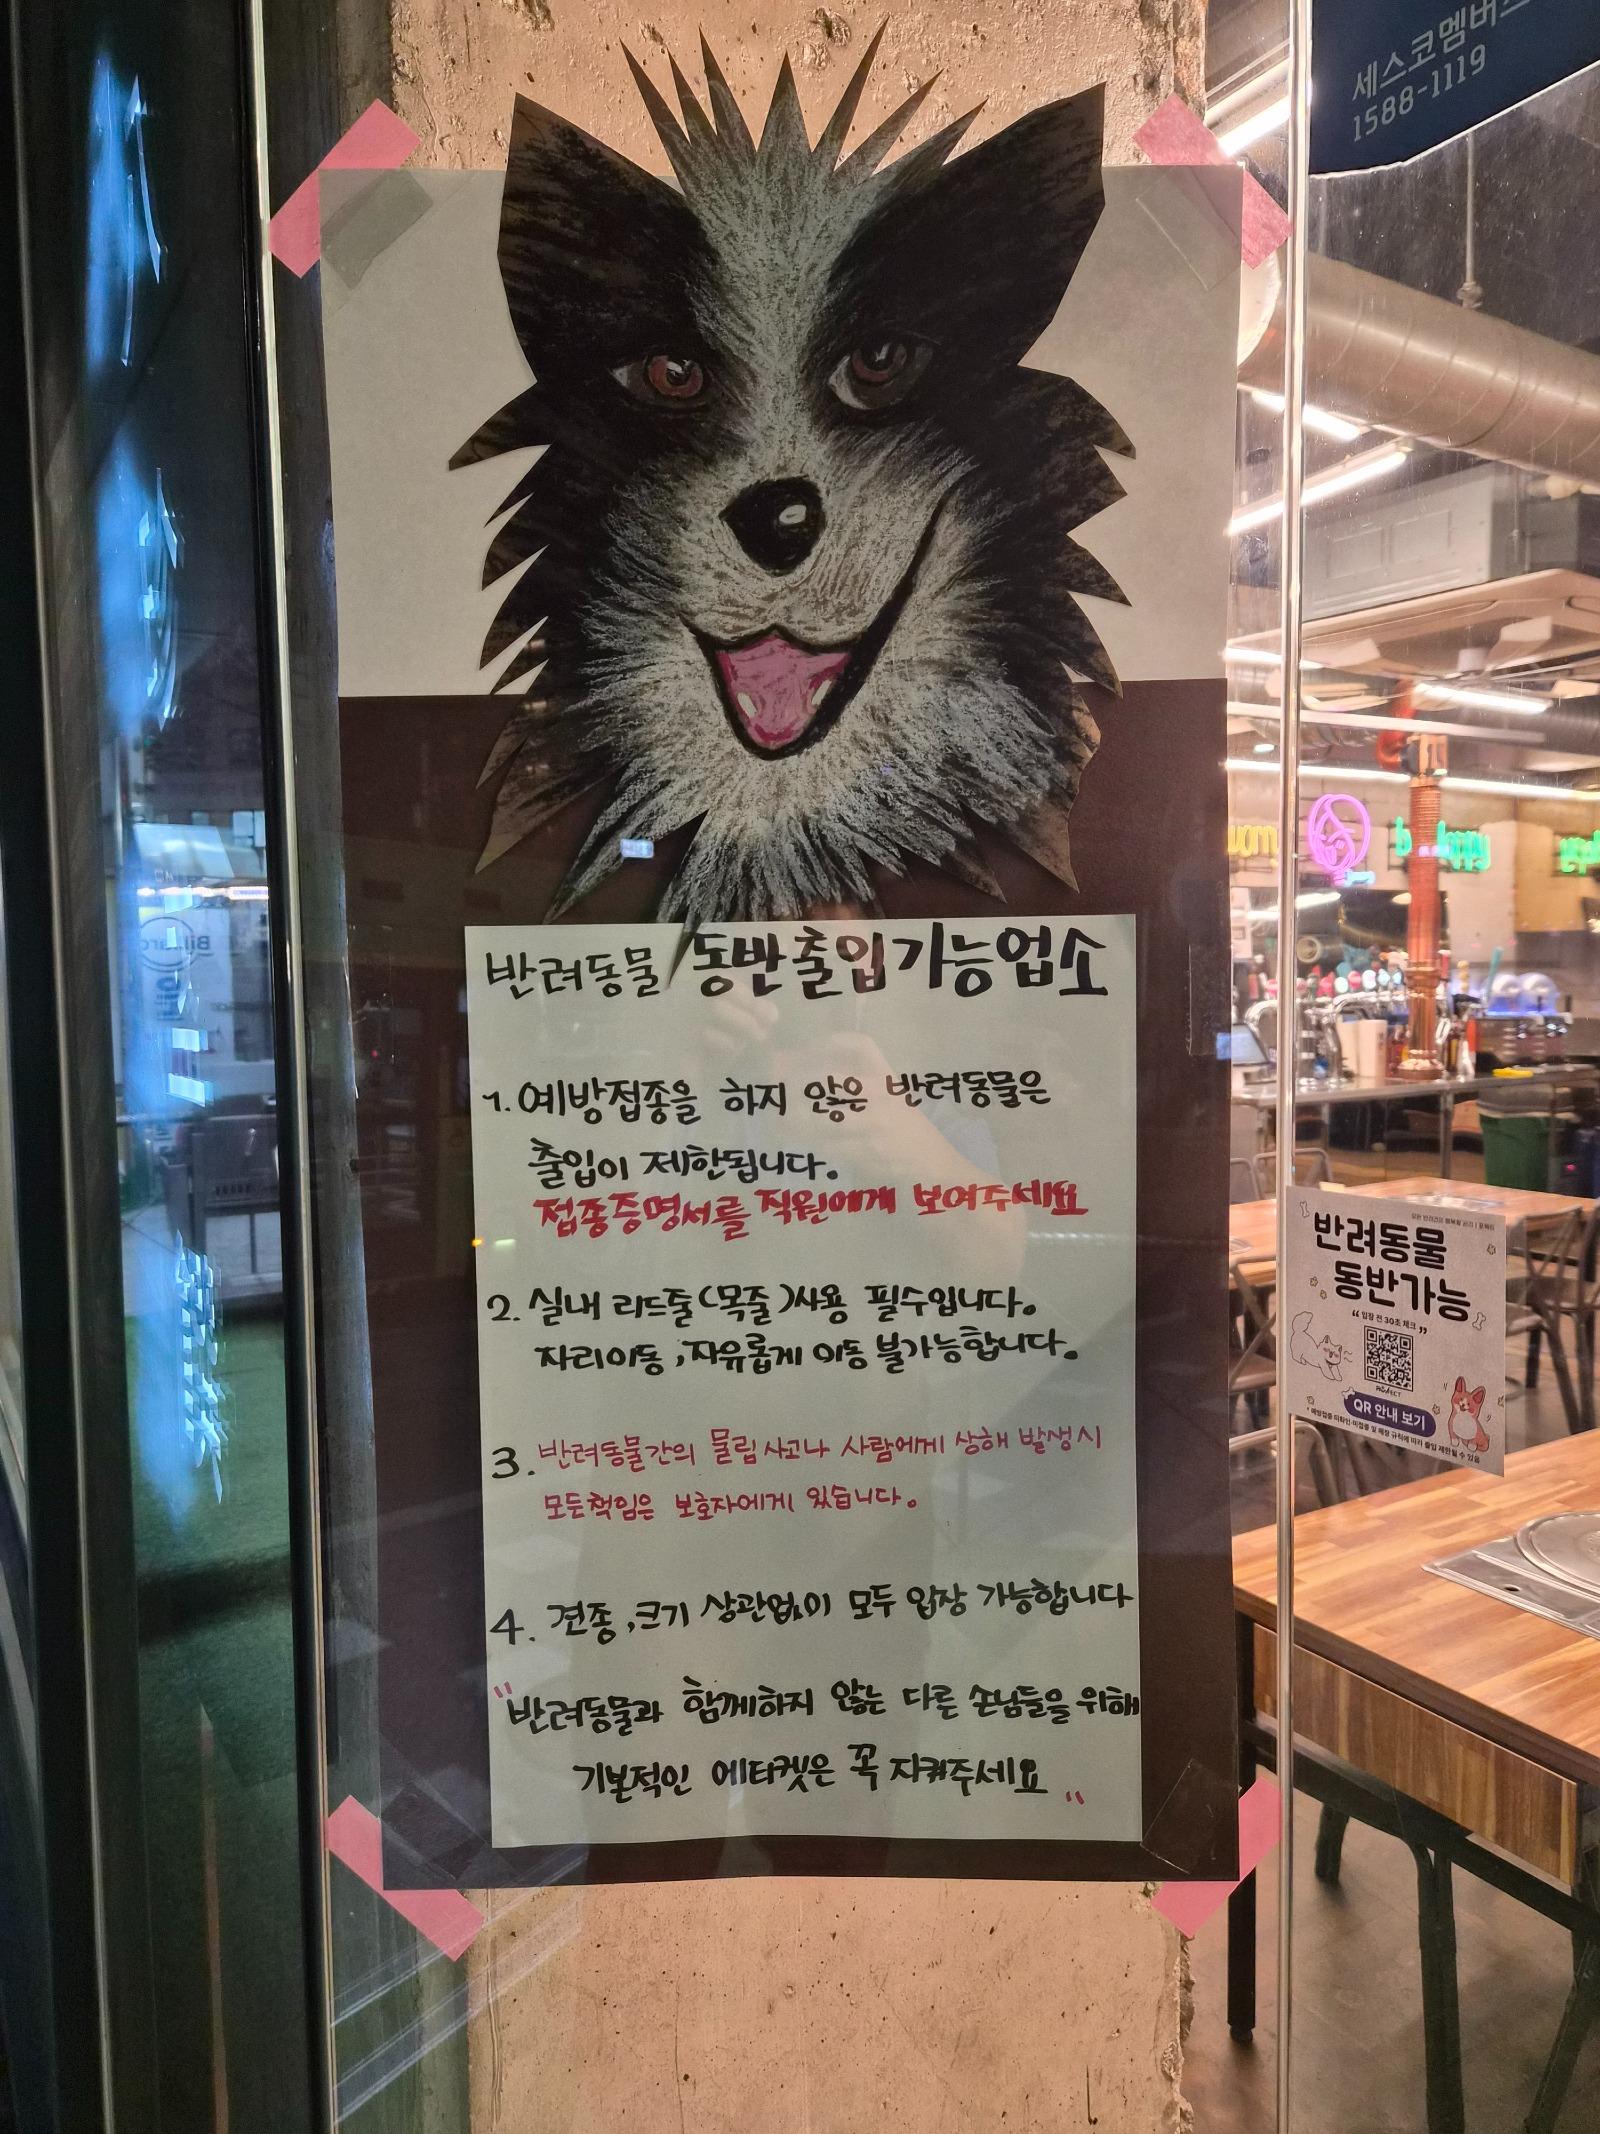 세스코멤버스
1588-1119
반려동물 동반출입가능업소
1. 예방접종을 하지 않은 반려동물은
출입이 제한됩니다.
접종증명서를 직원에게 보여주세요
2. 실내 리드줄(목줄)사용 필수입니다.
자리이동, 자유롭게 이동 불가능합니다.
3. 반려동물간의 물림사고나 사람에게 상해 발생시
모든책임은 보호자에게 있습니다.
4. 견종, 크기 상관없이 모두 입장 가능합니다
"반려동물과 함께하지 않는 다른 손님들을 위해
기본적인 에티켓은 꼭 지켜주세요"
반려동물
동반가능
"입장 전 30초 체크"
QR 안내 보기
* 예방접종 미확인·미접종 및 매장 규칙에 따라 출입 제한될 수 있음